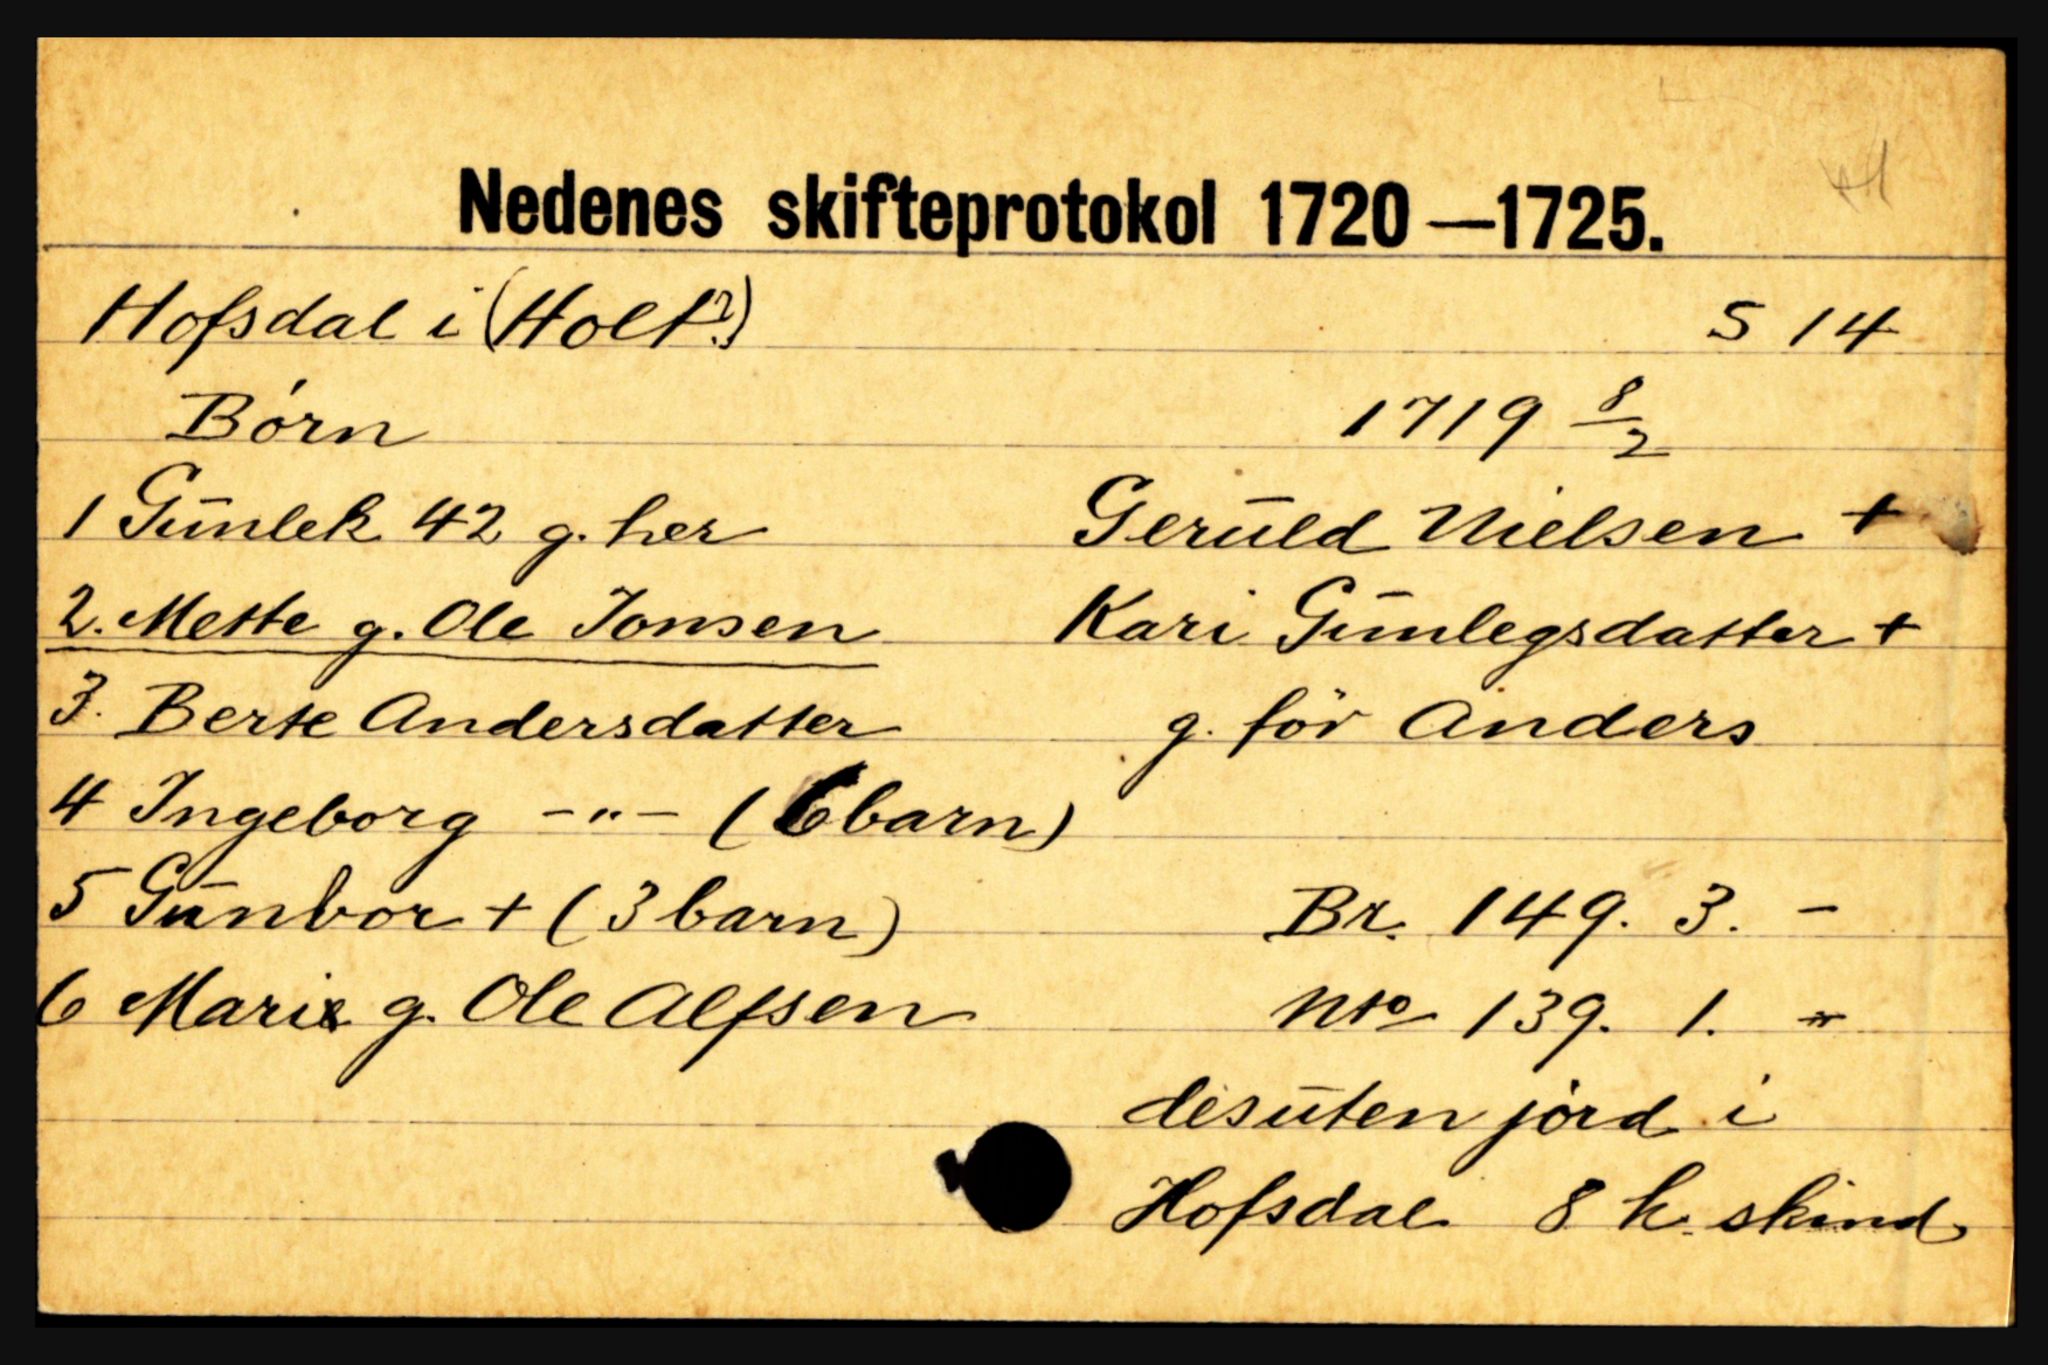 Nedenes skifteprotokol 1720—1725.
Hofsdal i (Holt?) S 14
Børn 1719 8/2
1 Gunlek 42 g. her Geruld Nielsen +
2. Mette g. Ole Jonsen Kari Gunlegsdatter +
3. Berte Andersdatter g. før Anders
4 Ingeborg -"- (6 barn)
5 Gunbor + (3 barn) Br. 149. 3. -
6 Marie g. Ole Alfsen Nto 139. 1. -
desuten jord i
Hofsdal 8 h. skind